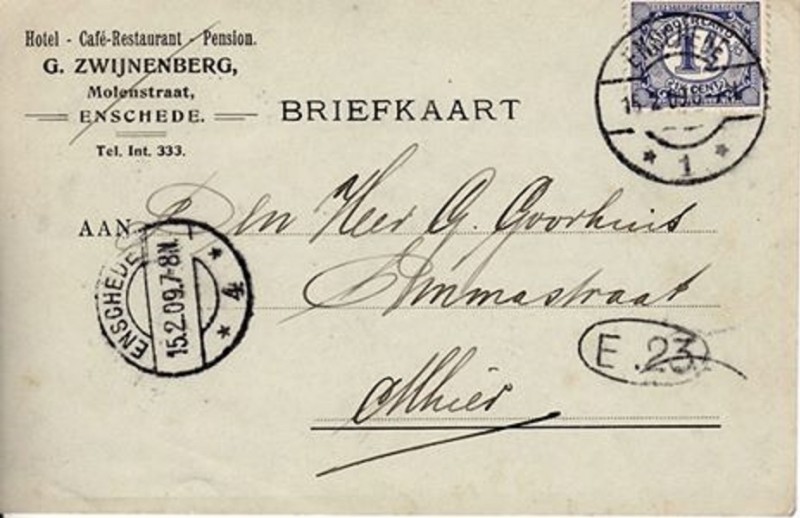 Hotel - Café-Restaurant - Pension.
G. ZWIJNENBERG,
Molenstraat,
ENSCHEDE.
Tel. Int. 333.
BRIEFKAART
NEDERLAND
1½
CENT
ENSCHEDE
15.2.09
1
AAN Den Heer G. Goorhuis
Emmastraat
Alhier
ENSCHEDE
15.2.09.7-8N.
4
E.23